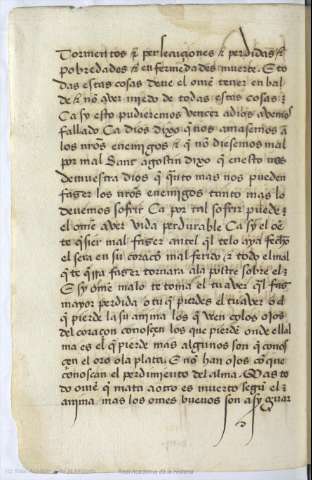 Tormentos τ persecuçiones τ perdidas τ
pobredades τ enfermedades muerte. E to
das estas cosas deve el ome tener en bal
de τ nō aver miedo de todas estas cosas τ
Ca sy esto pudieremos vençer a dios avemos
fallado. Ca dios dixo q̄ nos amasemos a
los nr̄os enemigos τ q̄ nō diesemos mal
por mal Sant agostin dixo q̄ en esto nos
demuestra dios q̄ q̄nto mas nos pueden
fazer los nr̄os enemigos tanto mas lo
devemos sofrir Ca por tal sofrir puede
el ome aver vida perdurable Ca sy el ōe
te q̄sier mal fazer antes q̄l telo aya fecho
el sera en su coraçō mal ferido τ todo el mal
q̄ te q̄rra fazer tornara a la postre sobre el
E sy ōme malo te toma el tu aver q̄l faz
mayor perdida o tu q̄ pierdes el tu aver o el
q̄ pierde la su anima los q̄ veen cō los ojos
del coraçon conosçen los que pierdē onde ella
ma es el q̄ pierde mas algunos son q̄ conos
çen el oro o la plata. E nō han ojos cō que
conoscan el perdimiento del alma. Mas to
do ome q̄ mata a otro es muerto segūt el
anima mas los omes buenos son asy guar
Real Academia de la Historia